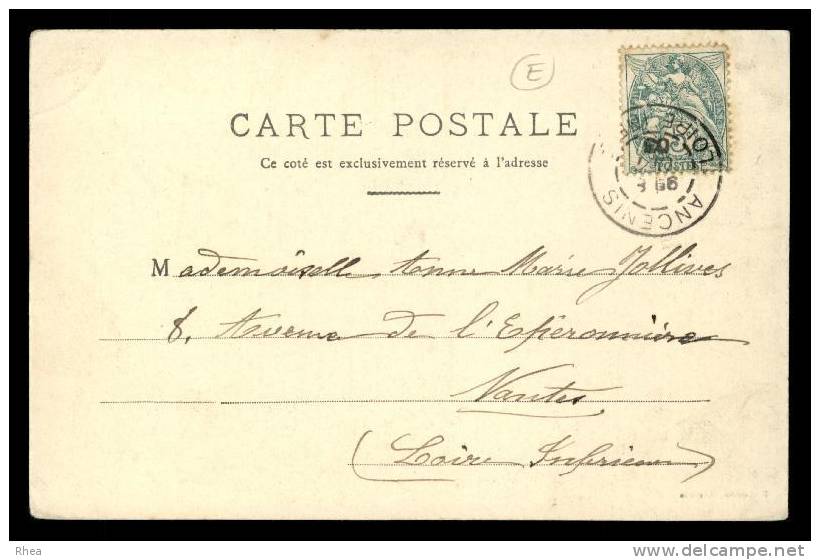 E
CARTE POSTALE
Ce coté est exclusivement réservé à l'adresse
POSTE
ANCENIS
LOIRE
Mademoiselle Anne Marie Jollives
8, Avenue de l'Eperonnière
Nantes
(Loire Inférieure)
Rhea
http://www.delcampe.net